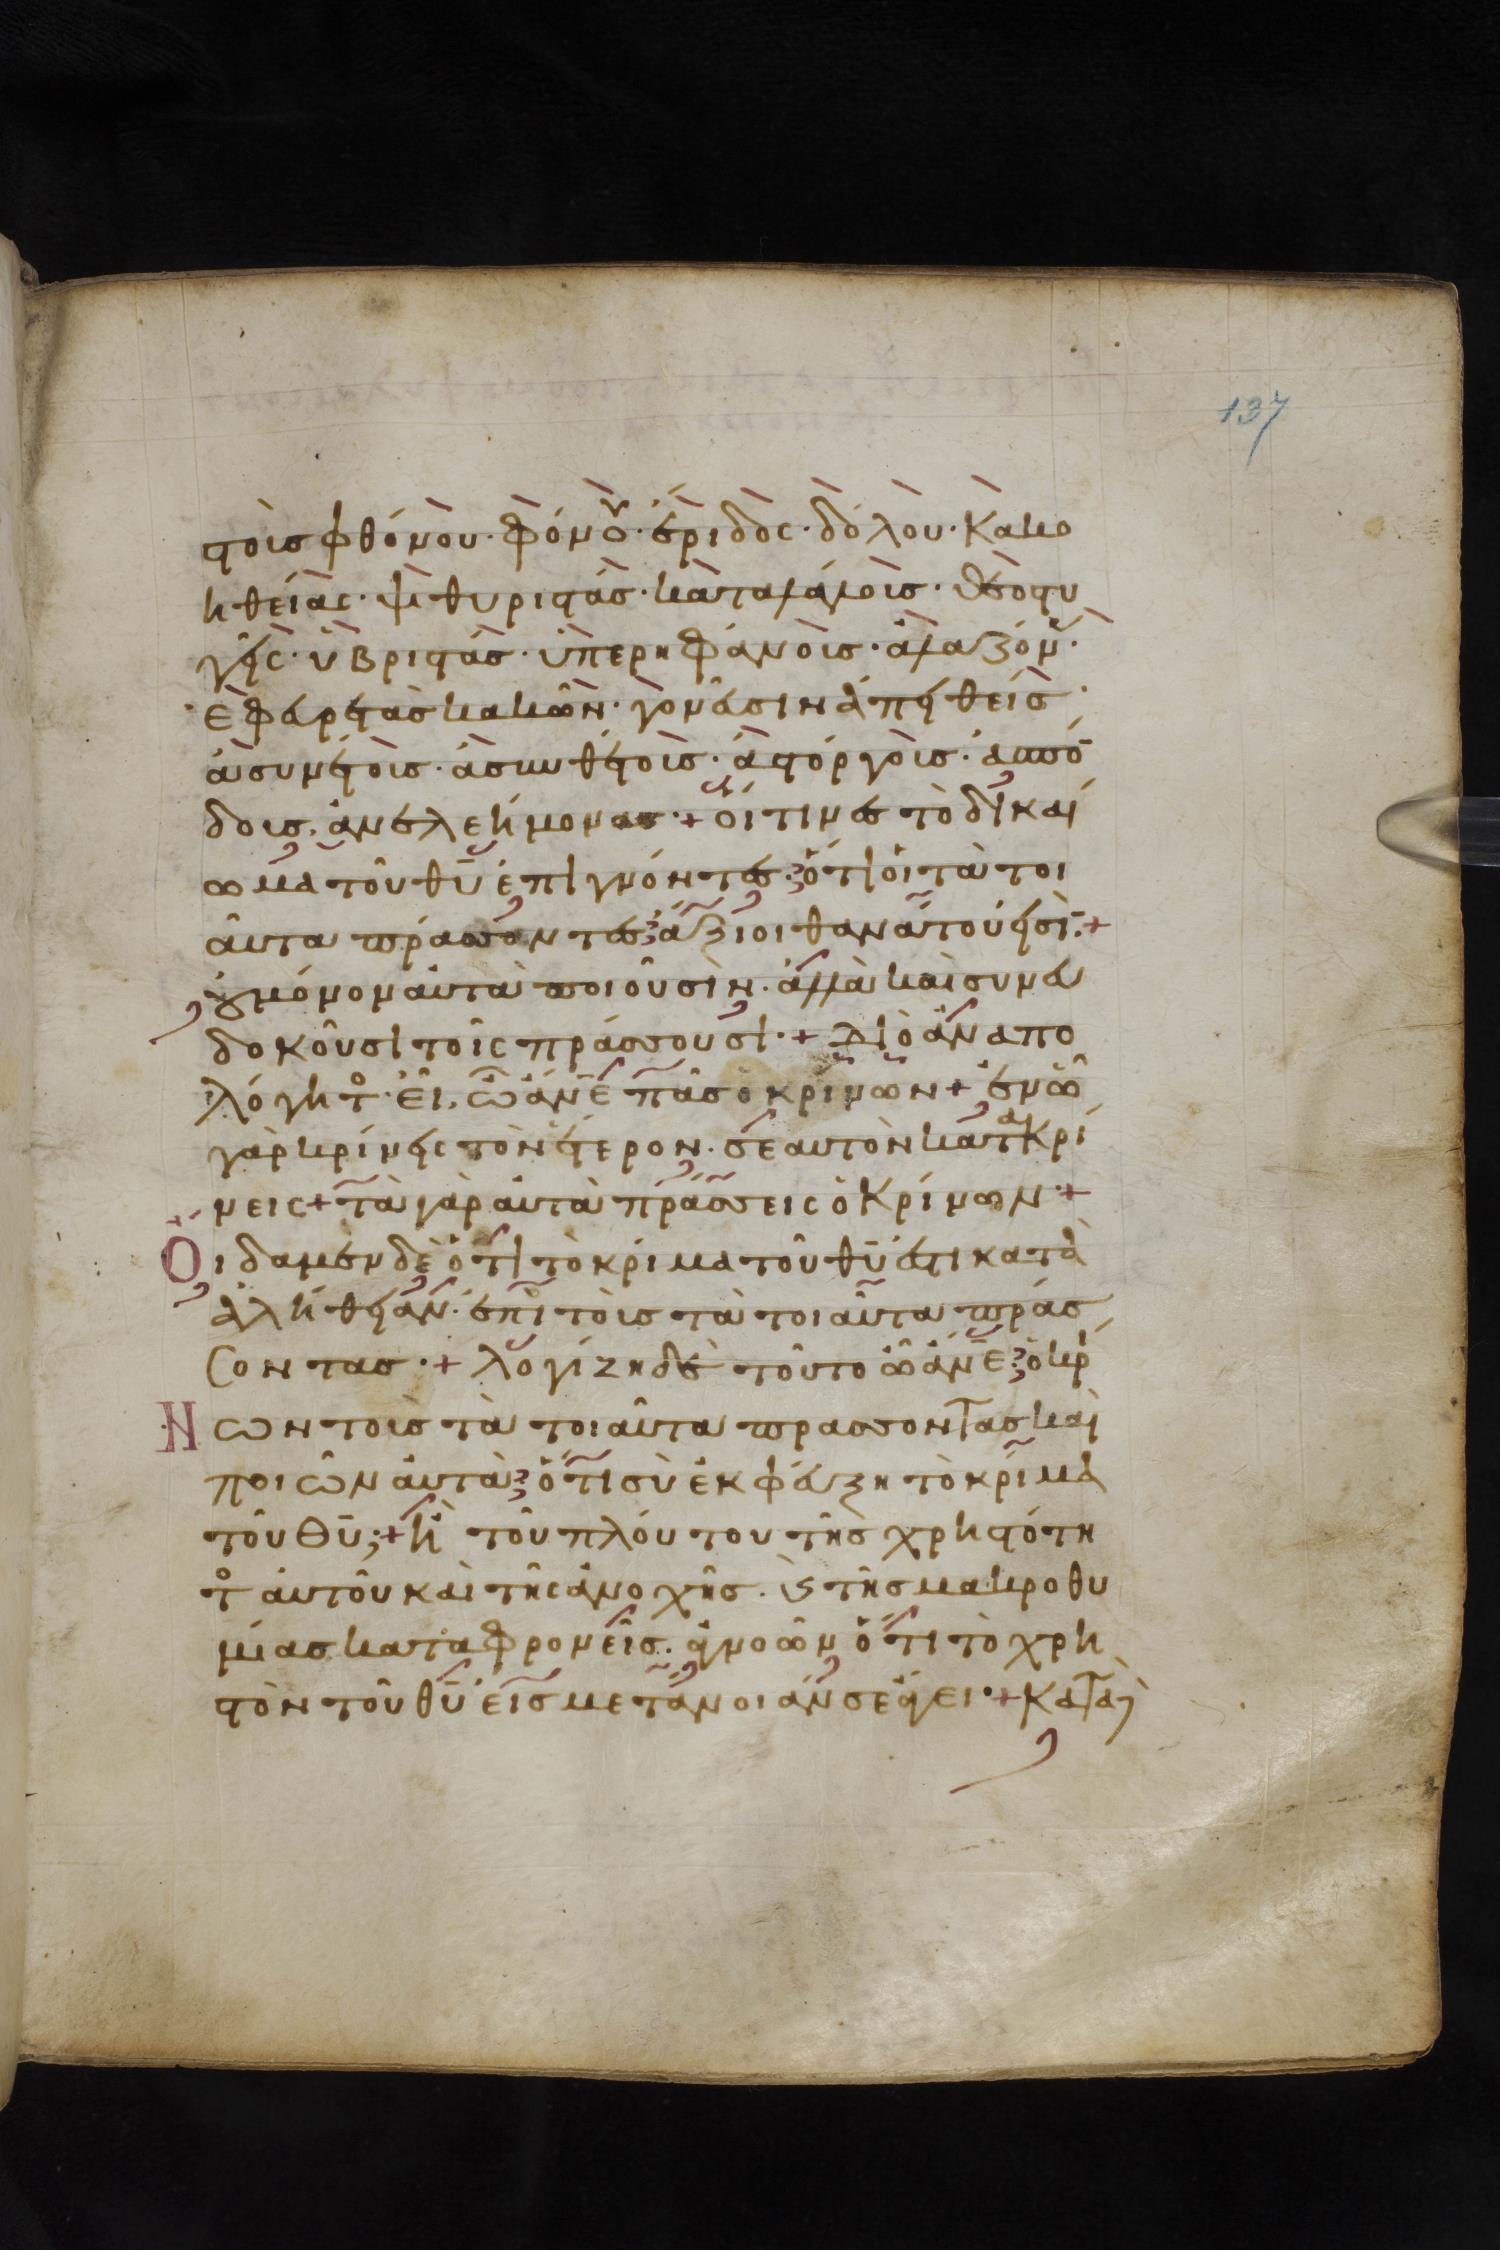 137
στοὺσ φθόνου· φόνου· ἔριδος· δόλου· κακο
ηθείας· ψιθυριστάσ· καταλάλουσ· θεοστυ
γεῖς· ὑβριστάσ· ὑπερηφάνουσ· ἀλαζόν·
ἐφευρετὰσ κακῶν· γονεῦσιν ἀπειθεῖσ·
ἀσυνέτουσ· ἀσυνθέτουσ· ἀστόργουσ· ἀσπό
δουσ· ἀνελεήμονασ·+ οἵτινεσ τὸ δικαί
ωμα τοῦ θῦ ἐπιγνόντεσ· ὅτι οἱ τὰ τοι
αῦτα πράσσοντεσ ἄξιοι θανάτου εἰσὶ·+
οὐ μόνον αὐτὰ ποιοῦσιν· ἀλλὰ καὶ συνευ
δοκοῦσι τοῖς πράσσουσι·+ Διὸ ἀναπο
λόγητος εἶ, ὦ ἄνε πᾶσ ὁ κρίνων+ ἐν ὧ
γὰρ κρίνεις τὸν ἕτερον· σεαυτὸν κατακρί
νεις+ τὰ γὰρ αὐτὰ πράσσεις ὁ κρίνων·+
Οἴδαμεν δὲ ὅτι τὸ κρίμα τοῦ θῦ ἐστι κατὰ
ἀλήθειαν· ἐπὶ τοὺσ τὰ τοιαῦτα πράσ
σοντασ·+ λογίζη δὲ τοῦτο ὦ ἄνε ὁ κρί
Νων τοὺσ τὰ τοιαῦτα πράσσοντασ καὶ
ποιῶν αὐτὰ ὅτι σὺ ἐκφεύξη τὸ κρίμα
τοῦ Θῦ;+ ἢ τοῦ πλούτου τῆσ χρηστότη
τος αὐτοῦ καὶ τῆς ἀνοχῆσ· ϗ τῆσ μακροθυ
μίασ καταφρονεῖσ· ἀγνοῶν ὅτι τὸ χρη
στὸν τοῦ θῦ εἰσ μετάνοιάν σε ἄγει·+ κατὰ